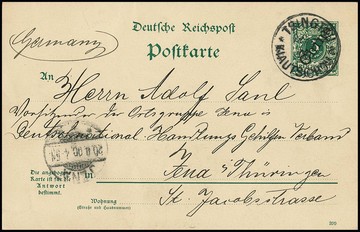 Deutsche Reichspost
Germany
Postkarte
TSINGTAU
KIAUTSCHOU
An
Herrn Adolf Saul
Vorsitzender der Ortsgruppe Jena
Deutschnational. Handlungs Gehilfen Verband
in Jena i/Thüringen
St. Jacobsstrasse
Die angebogene
Karte ist für die
Antwort
bestimmt.
Wohnung
(Straße und Hausnummer)